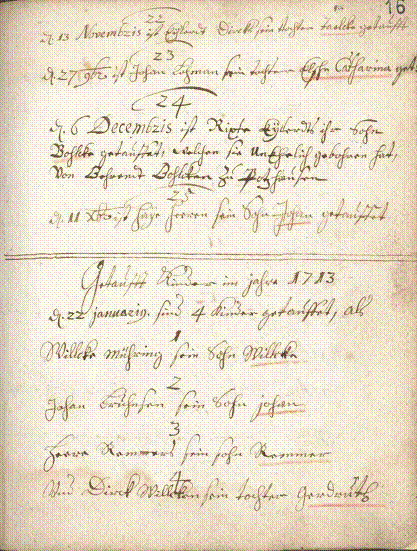 16
22
d. 13 Novembris ist Eylerdt Dircks sein tochter Taelcke getaufft
23
d. 27 9br ist Johan Lohman sein tochter Elsche Catharina get.
24
d. 6 Decembris ist Rixte Eylerdts ihr Sohn
Bohlke getauffet, welchen sie unEhelich gebohren hat,
von Behrendt Bohlken zu Potzhausen
25
d. 11 Xbr ist Haye Heeren sein Sohn Johan getauffet
Getauffte Kinder im jahre 1713
d. 22 januarig. sind 4 Kinder getauffet, als
1
Willcke Mühring sein Sohn Willcke
2
Johan Bruhnsen sein Sohn johan
3
Heere Remmers sein sohn Remmer
4
Und Dirck Willcken sein tochter Gerdruts